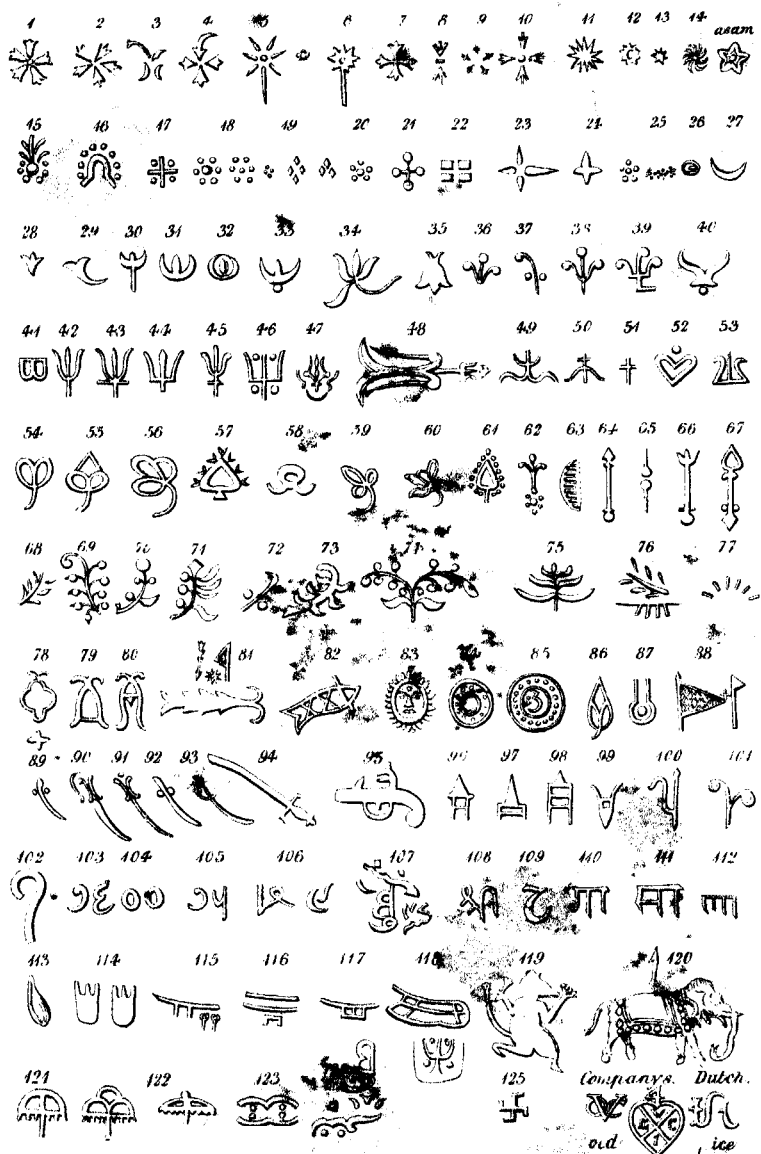 1 2 3 4 5 6 7 8 9 10 11 12 13 14 asam
15 16 17 18 19 20 21 22 23 24 25 26 27
28 29 30 31 32 33 34 35 36 37 38 39 40
41 42 43 44 45 46 47 48 49 50 51 52 53
54 55 56 57 58 59 60 61 62 63 64 65 66 67
68 69 70 71 72 73 74 75 76 77
78 79 80 81 82 83 84 85 86 87 88
89 90 91 92 93 94 95 96 97 98 99 100 101
102 103 104 105 106 107 108 109 110 111 112
113 114 115 116 117 118 119 120
121 122 123 125 Companys. Dutch.
old